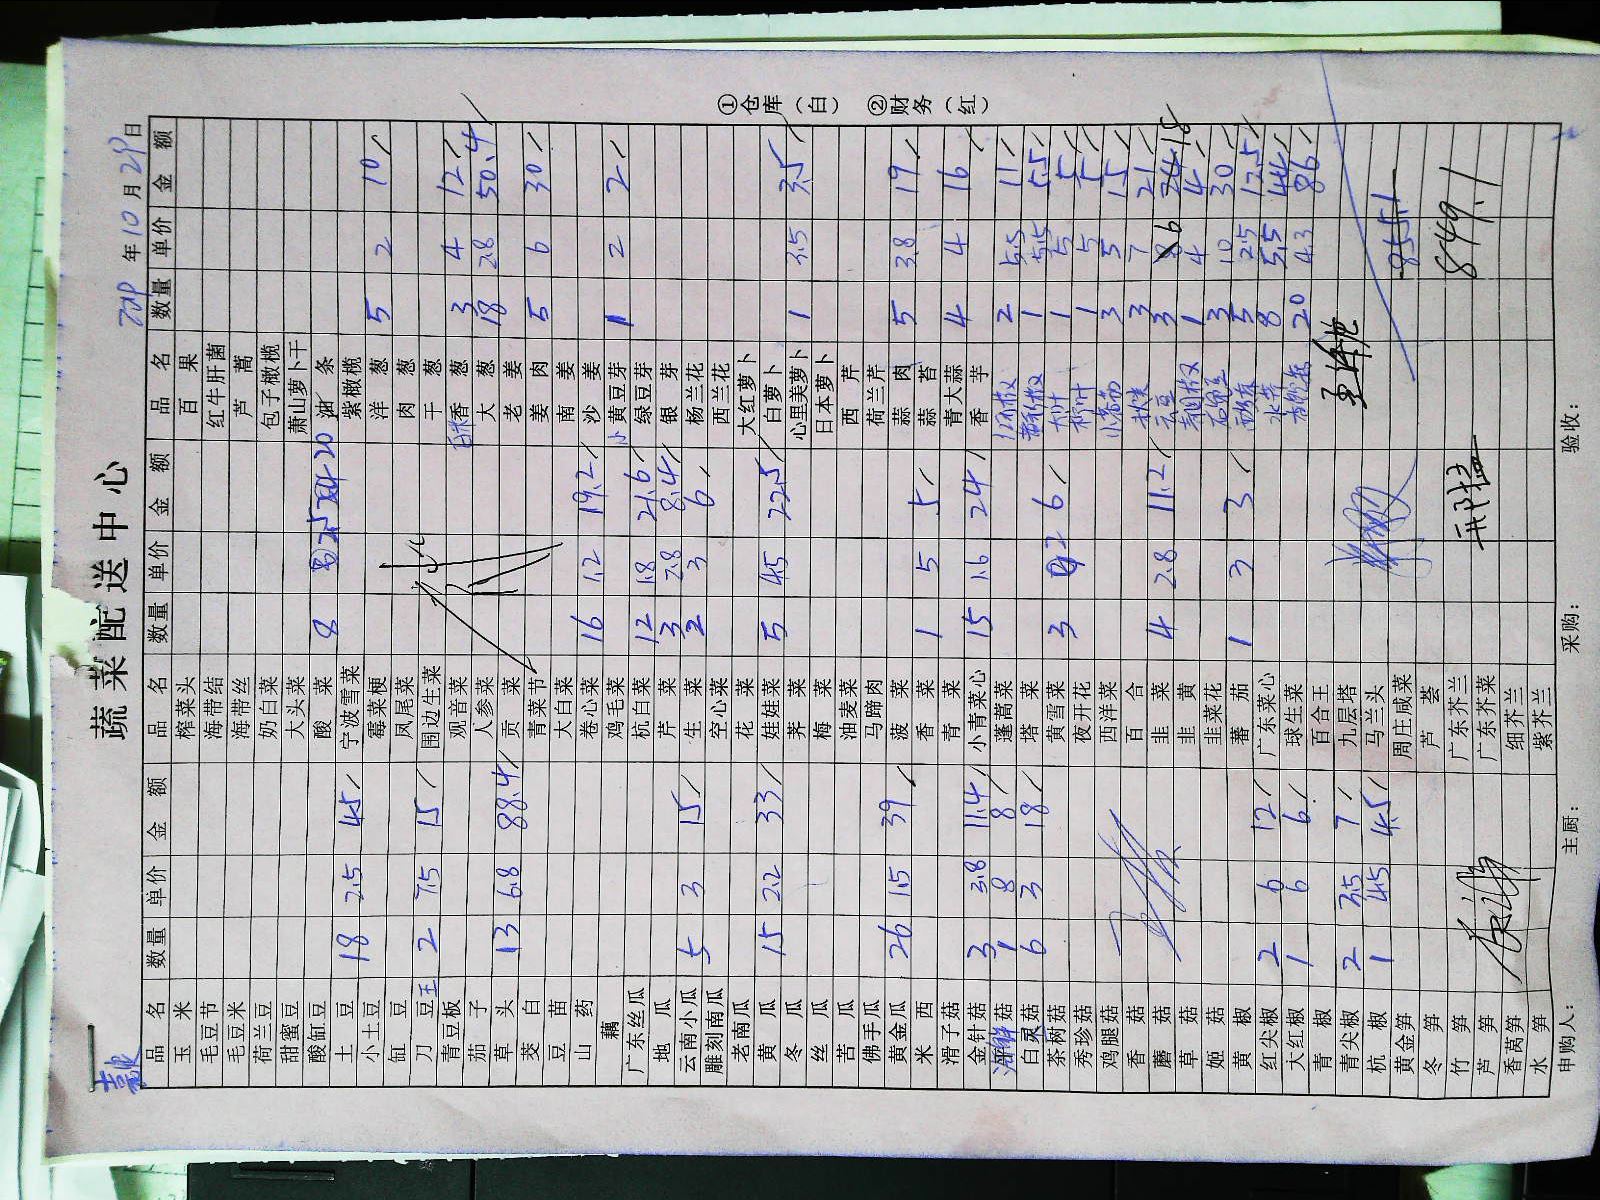 蔬菜配送中心
年 10 月 29 日
品名 数量 单价 金额 品名 数量 单价 金额 品名 数量 单价 金额
玉米 榨菜头 百果
毛豆节 海带结 红牛肝菌
毛豆米 海带丝 芦蒿
荷兰豆 奶白菜 包子橄榄
甜蜜豆 大头菜 萧山萝卜干
酸缸豆 酸菜 8 2.5 20 油条
土豆 18 2.5 45 宁波雪菜 紫橄榄
小土豆 霉菜梗 洋葱 5 2 10
缸豆 凤尾菜 肉葱
刀豆 2 7.5 15 围边生菜 干葱
青豆板 观音菜 香葱 3 4 12
茄子 人参菜 大葱 18 2.8 50.4
草头 13 6.8 88.4 贡菜 老姜
茭白 青菜节 姜肉 5 6 30
豆苗 大白菜 南姜
山药 卷心菜 16 1.2 19.2 沙姜
藕 鸡毛菜 小黄豆芽 1 2 2
广东丝瓜 杭白菜 12 1.8 21.6 绿豆芽
地瓜 芹菜 3 2.8 8.4 银芽
云南小瓜 5 3 15 生菜 2 3 6 杨兰花
雕刻南瓜 空心菜 西兰花
老南瓜 花菜 大红萝卜
黄瓜 15 2.2 33 娃娃菜 5 4.5 22.5 白萝卜
冬瓜 荠菜 心里美萝卜 1 3.5 3.5
丝瓜 梅菜 日本萝卜
苦瓜 油麦菜 西芹
佛手瓜 马蹄肉 荷兰芹
黄金瓜 26 1.5 39 菠菜 蒜肉 5 3.8 19
米西 香菜 1 5 5 蒜苔
滑子菇 青菜 青大蒜 4 4 16
金针菇 3 3.8 11.4 小青菜心 15 1.6 24 香芋
海鲜菇 1 8 8 蓬蒿菜 2 5.5 11
白灵菇 6 3 18 塔菜 1 5.5 5.5
茶树菇 黄雪菜 3 2 6 1 5 5
秀珍菇 夜开花 1 5 5
鸡腿菇 西洋菜 3 5 15
香菇 百合 3 7 21
蘑菇 韭菜 4 2.8 11.2 3 6 18
草菇 韭黄 1 4 4
姬菇 韭菜花 3 10 30
黄椒 蕃茄 1 3 3 西芹 5 2.5 12.5
红尖椒 2 6 12 广东菜心 8 5.5 44
大红椒 1 6 6 球生菜 20 4.3 86
青椒 百合王
青尖椒 2 3.5 7 九层塔
杭椒 1 4.5 4.5 马兰头
黄金笋 周庄咸菜 855.1
冬笋 芦荟
竹笋 广东芥兰 849.1
芦笋 广东芥菜
香莴笋 细芥兰
水笋 紫芥兰
申购人： 主厨： 采购： 验收：
①仓库（白） ②财务（红）